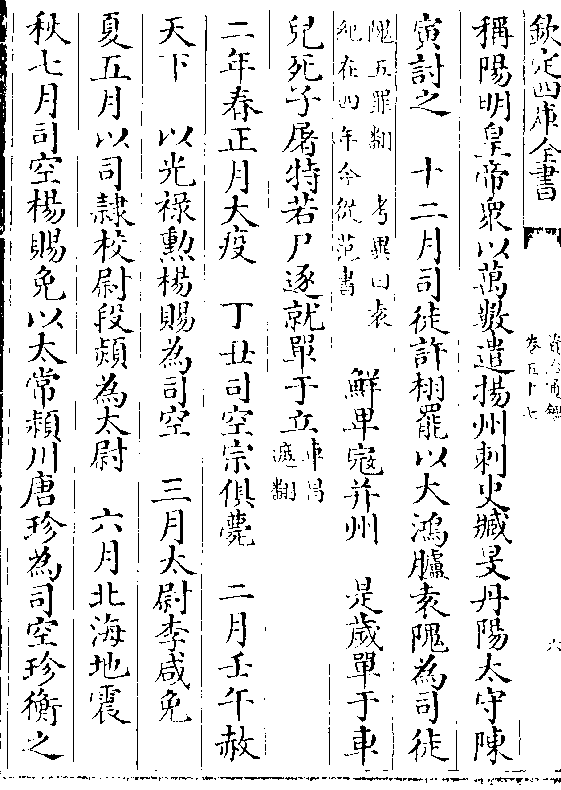 欽定四庫全書
資治通鑑
卷五十七
六
稱陽明皇帝衆以萬數遣揚州刺史臧旻丹陽太守陳
寅討之　十二月司徒許栩罷以大鴻臚袁隗為司徒
隗五罪翻　考異曰袁
紀在四年今從范書
鮮卑寇并州　是歲單于車
兒死子屠特若尸逐就單于立
車昌
遮翻
二年春正月大疫　丁丑司空宗俱薨　二月壬午赦
天下　以光祿勲楊賜為司空　三月太尉李咸免
夏五月以司隸校尉段熲為太尉　六月北海地震
秋七月司空楊賜免以太常潁川唐珍為司空珍衡之